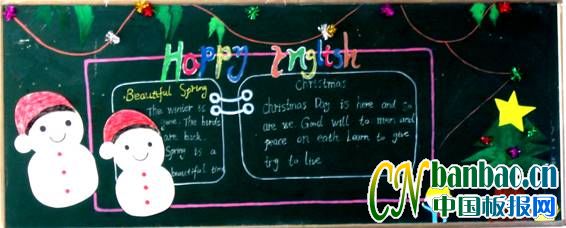 Happy English
Beautiful Spring
The winter is
gone. The birds
are back.
Spring is a
beautiful time
Christmas
Christmas Day is here and so
are we. Good will to men and
peace on eath. Learn to give
try to live
CN banbao.cn
中国板报网